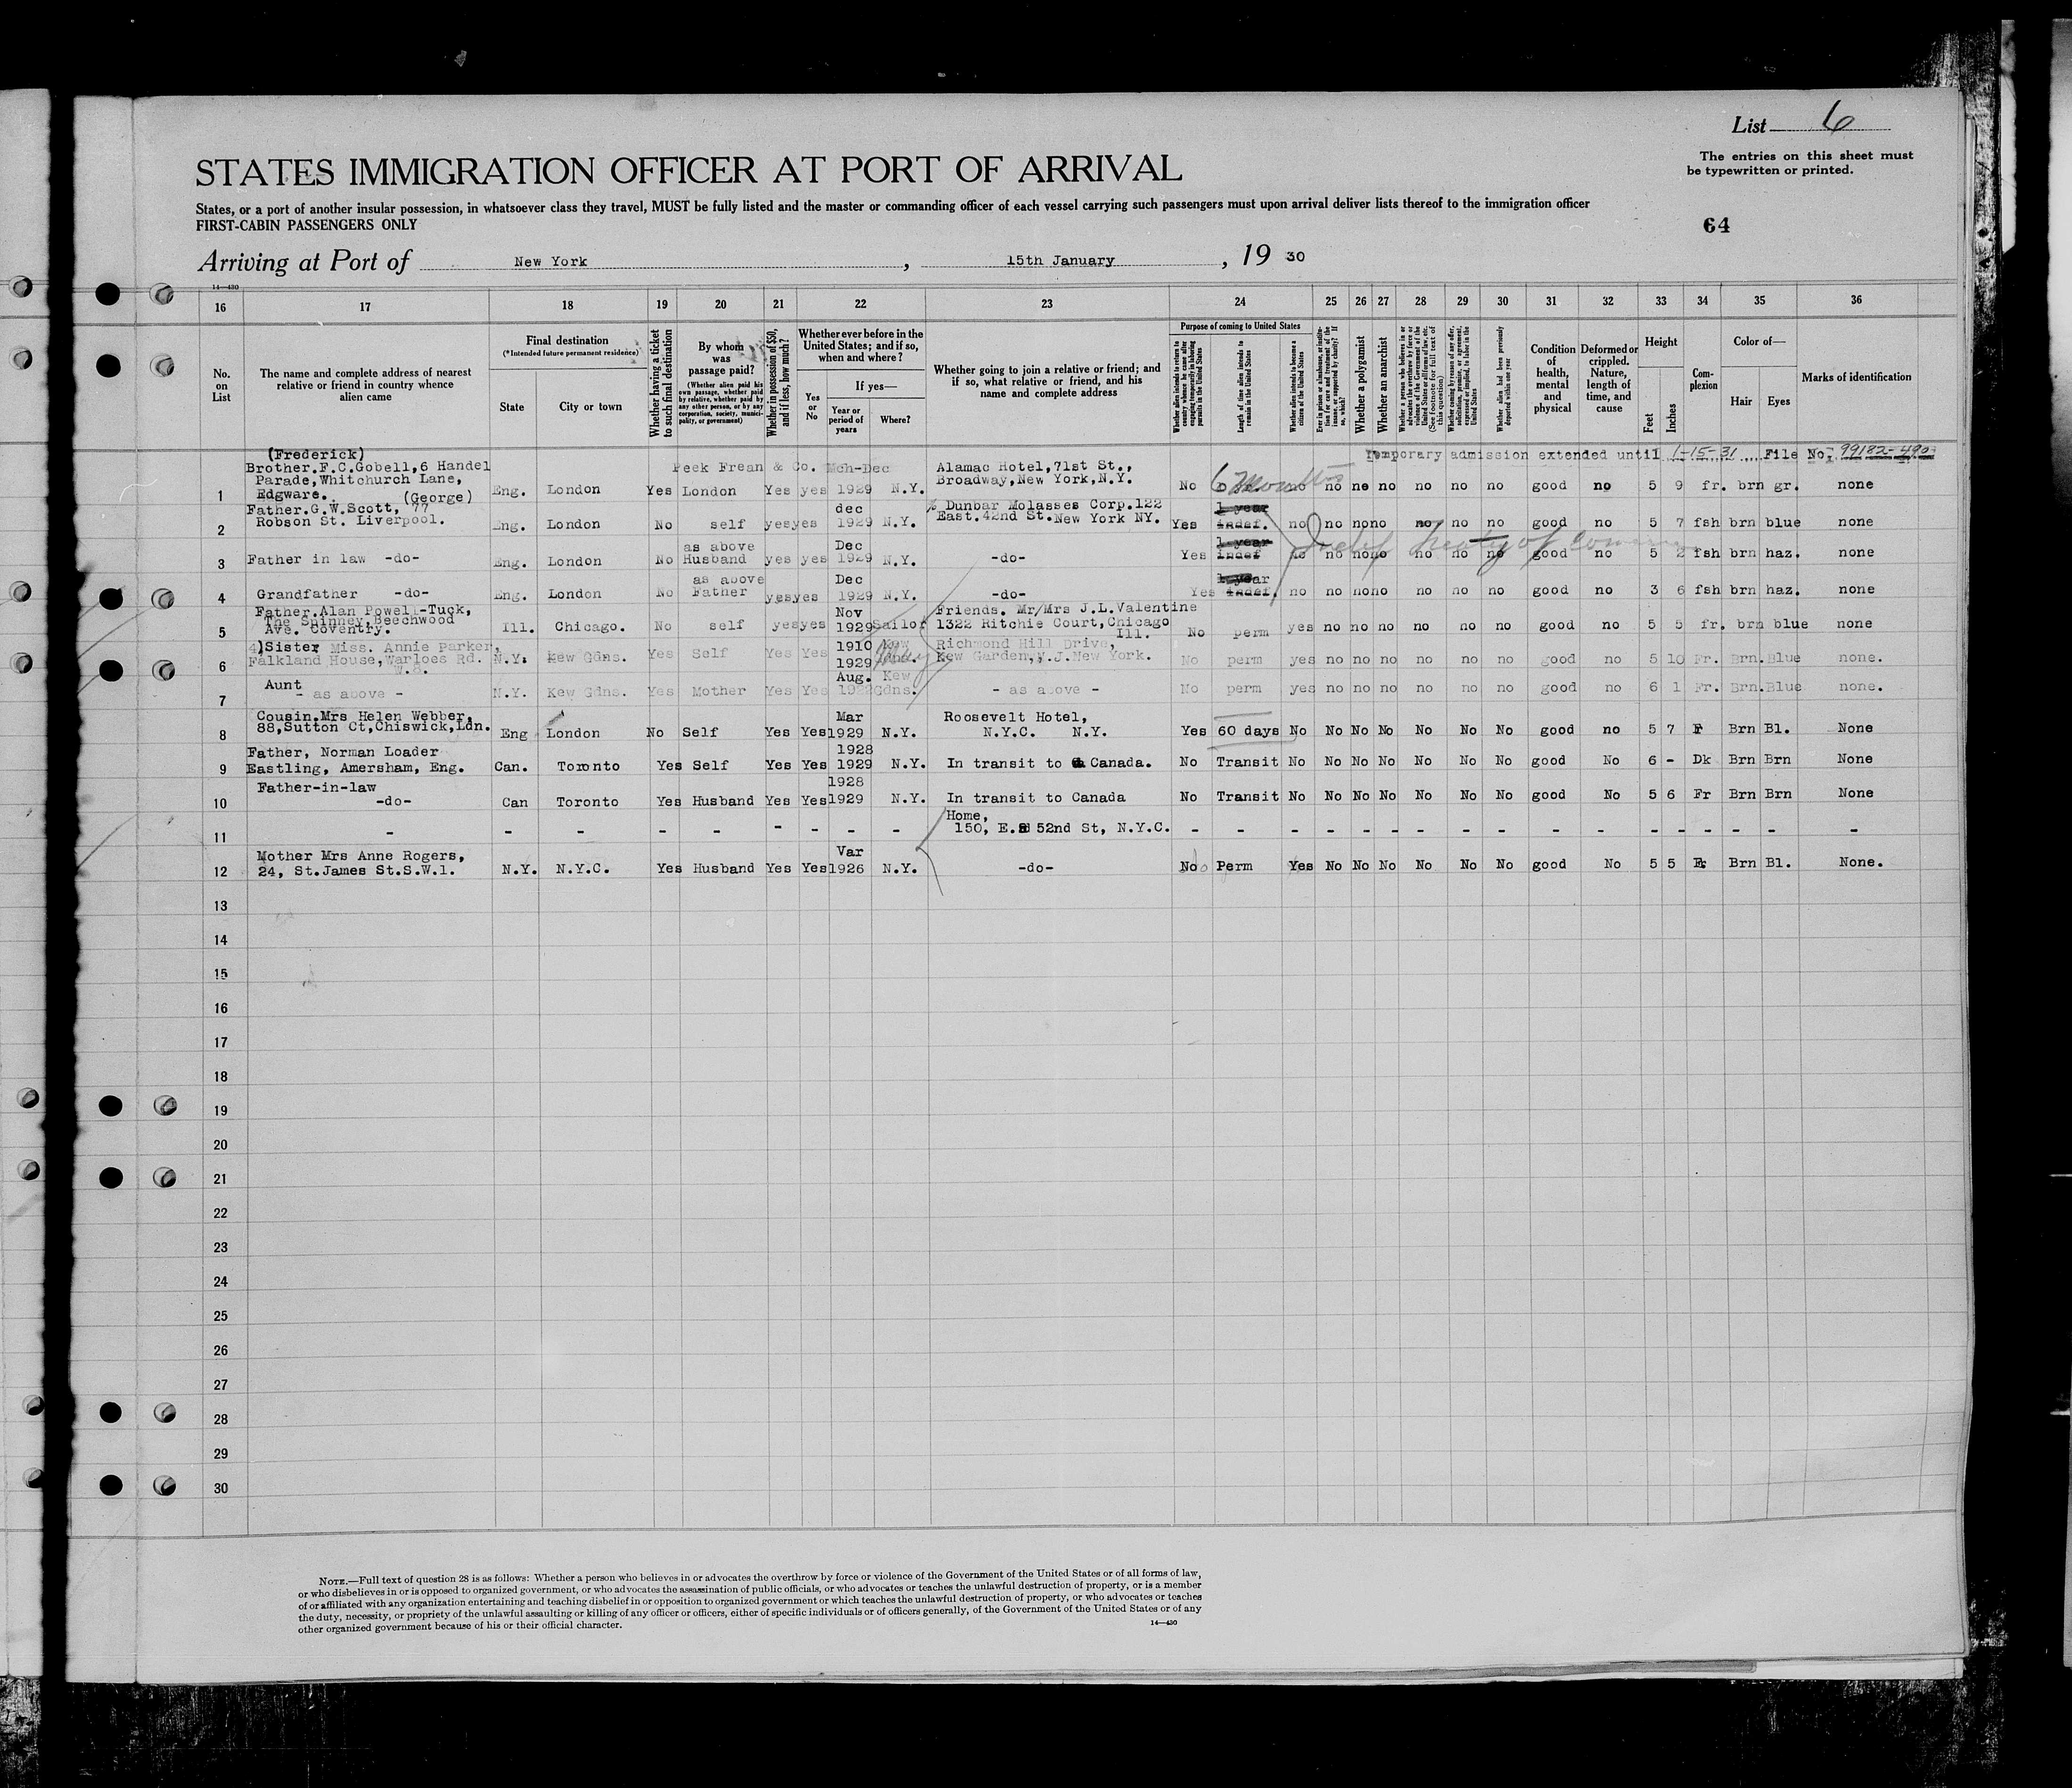 List 6
The entries on this sheet must
be typewritten or printed.
STATES IMMIGRATION OFFICER AT PORT OF ARRIVAL
States, or a port of another insular possession, in whatsoever class they travel, MUST be fully listed and the master or commanding officer of each vessel carrying such passengers must upon arrival deliver lists thereof to the immigration officer
FIRST-CABIN PASSENGERS ONLY
64
Arriving at Port of New York, 15th January, 19 30
14—430
16 17 18 19 20 21 22 23 24 25 26 27 28 29 30 31 32 33 34 35 36
No.
on
List
The name and complete address of nearest
relative or friend in country whence
alien came
Final destination
(*Intended future permanent residence)
State
City or town
Whether having a ticket
to such final destination
By whom
was
passage paid?
(Whether alien paid his
own passage, whether paid
by relative, whether paid by
any other person, or by any
corporation, society, munici-
pality, or government)
Whether in possession of $50,
and if less, how much?
Whether ever before in the
United States; and if so,
when and where?
Yes
or
No
If yes—
Year or
period of
years
Where?
Whether going to join a relative or friend; and
if so, what relative or friend, and his
name and complete address
Purpose of coming to United States
Whether alien intends to return to
country whence he came after
engaging temporarily in laboring
pursuits in the United States
Length of time alien intends to
remain in the United States
Whether alien intends to become a
citizen of the United States
Ever in prison or almshouse, or institu-
tion for care and treatment of the
insane, or supported by charity? If
so, which?
Whether a polygamist
Whether an anarchist
Whether a person who believes in or
advocates the overthrow by force or
violence of the Government of the
United States or all forms of law, etc.
(See footnote for full text of
this question)
Whether coming by reason of any offer,
solicitation, promise, or agreement,
expressed or implied, to labor in the
United States
Whether alien had been previously
deported within one year
Condition
of
health,
mental
and
physical
Deformed or
crippled.
Nature,
length of
time, and
cause
Height
Feet
Inches
Com-
plexion
Color of—
Hair
Eyes
Marks of identification
Temporary admission extended until 1-15-31 File No. 99182-490
(Frederick)
Brother.F.C.Gobell,6 Handel Peek Frean & Co. Mch-Dec Alamac Hotel,71st St.,
Parade,Whitchurch Lane, Broadway,New York,N.Y.
1 Edgware. Eng. London Yes London Yes yes 1929 N.Y. No 6 Months no no no no no no no good no 5 9 fr. brn gr. none
(George)
Father.G.W.Scott, 77 dec Dunbar Molasses Corp.122 1 year
2 Robson St. Liverpool. Eng. London No self yes yes 1929 N.Y. East.42nd St.New York NY. Yes indef. no no no no no no no good no 5 7 fsh brn blue none
as above Dec 1 year
3 Father in law -do- Eng. London No Husband yes yes 1929 N.Y. -do- Yes indef no no no no no no no good no 5 2 fsh brn haz. none
as above Dec 1 year
4 Grandfather -do- Eng. London No Father yes yes 1929 N.Y. -do- Yes indef. no no no no no no no good no 3 6 fsh brn haz. none
Father.Alan Powell-Tuck, Nov Friends. Mr/Mrs J.L.Valentine
The Spinney,Beechwood 1322 Ritchie Court,Chicago
5 Ave. Coventry. Ill. Chicago. No self yes yes 1929 Sailor Ill. No perm yes no no no no no no good no 5 5 fr. brn blue none
Sister Miss. Annie Parker, 1910 Kew Richmond Hill Drive,
6 Falkland House,Warloes Rd. N.Y. Kew Gdns. Yes Self Yes Yes 1929 Kew Garden,N.J.New York. No perm yes no no no no no no good no 5 10 Fr. Brn. Blue none.
W.8.
Aunt Aug. Kew
7 - as above - N.Y. Kew Gdns. Yes Mother Yes Yes 1922 Gdns. - as above - No perm yes no no no no no no good no 6 1 Fr. Brn. Blue none.
Cousin.Mrs Helen Webber, Mar Roosevelt Hotel,
8 88,Sutton Ct,Chiswick,Ldn. Eng London No Self Yes Yes 1929 N.Y. N.Y.C. N.Y. Yes 60 days No No No No No No No good no 5 7 F Brn Bl. None
Father, Norman Loader 1928
9 Eastling, Amersham, Eng. Can. Toronto Yes Self Yes Yes 1929 N.Y. In transit to Canada. No Transit No No No No No No No good No 6 - Dk Brn Brn None
Father-in-law 1928
10 -do- Can Toronto Yes Husband Yes Yes 1929 N.Y. In transit to Canada No Transit No No No No No No No good No 5 6 Fr Brn Brn None
Home,
11 - - - - - - - - - 150, E. 52nd St, N.Y.C. - - - - - - - - - - - - - - - - -
Mother Mrs Anne Rogers, Var
12 24, St.James St.S.W.1. N.Y. N.Y.C. Yes Husband Yes Yes 1926 N.Y. -do- No Perm Yes No No No No No No good No 5 5 Fr Brn Bl. None.
13
14
15
16
17
18
19
20
21
22
23
24
25
26
27
28
29
30
NOTE.—Full text of question 28 is as follows: Whether a person who believes in or advocates the overthrow by force or violence of the Government of the United States or of all forms of law,
or who disbelieves in or is opposed to organized government, or who advocates the assassination of public officials, or who advocates or teaches the unlawful destruction of property, or is a member
of or affiliated with any organization entertaining and teaching disbelief in or opposition to organized government or which teaches the unlawful destruction of property, or who advocates or teaches
the duty, necessity, or propriety of the unlawful assaulting or killing of any officer or officers, either of specific individuals or of officers generally, of the Government of the United States or of any
other organized government because of his or their official character.
14—430